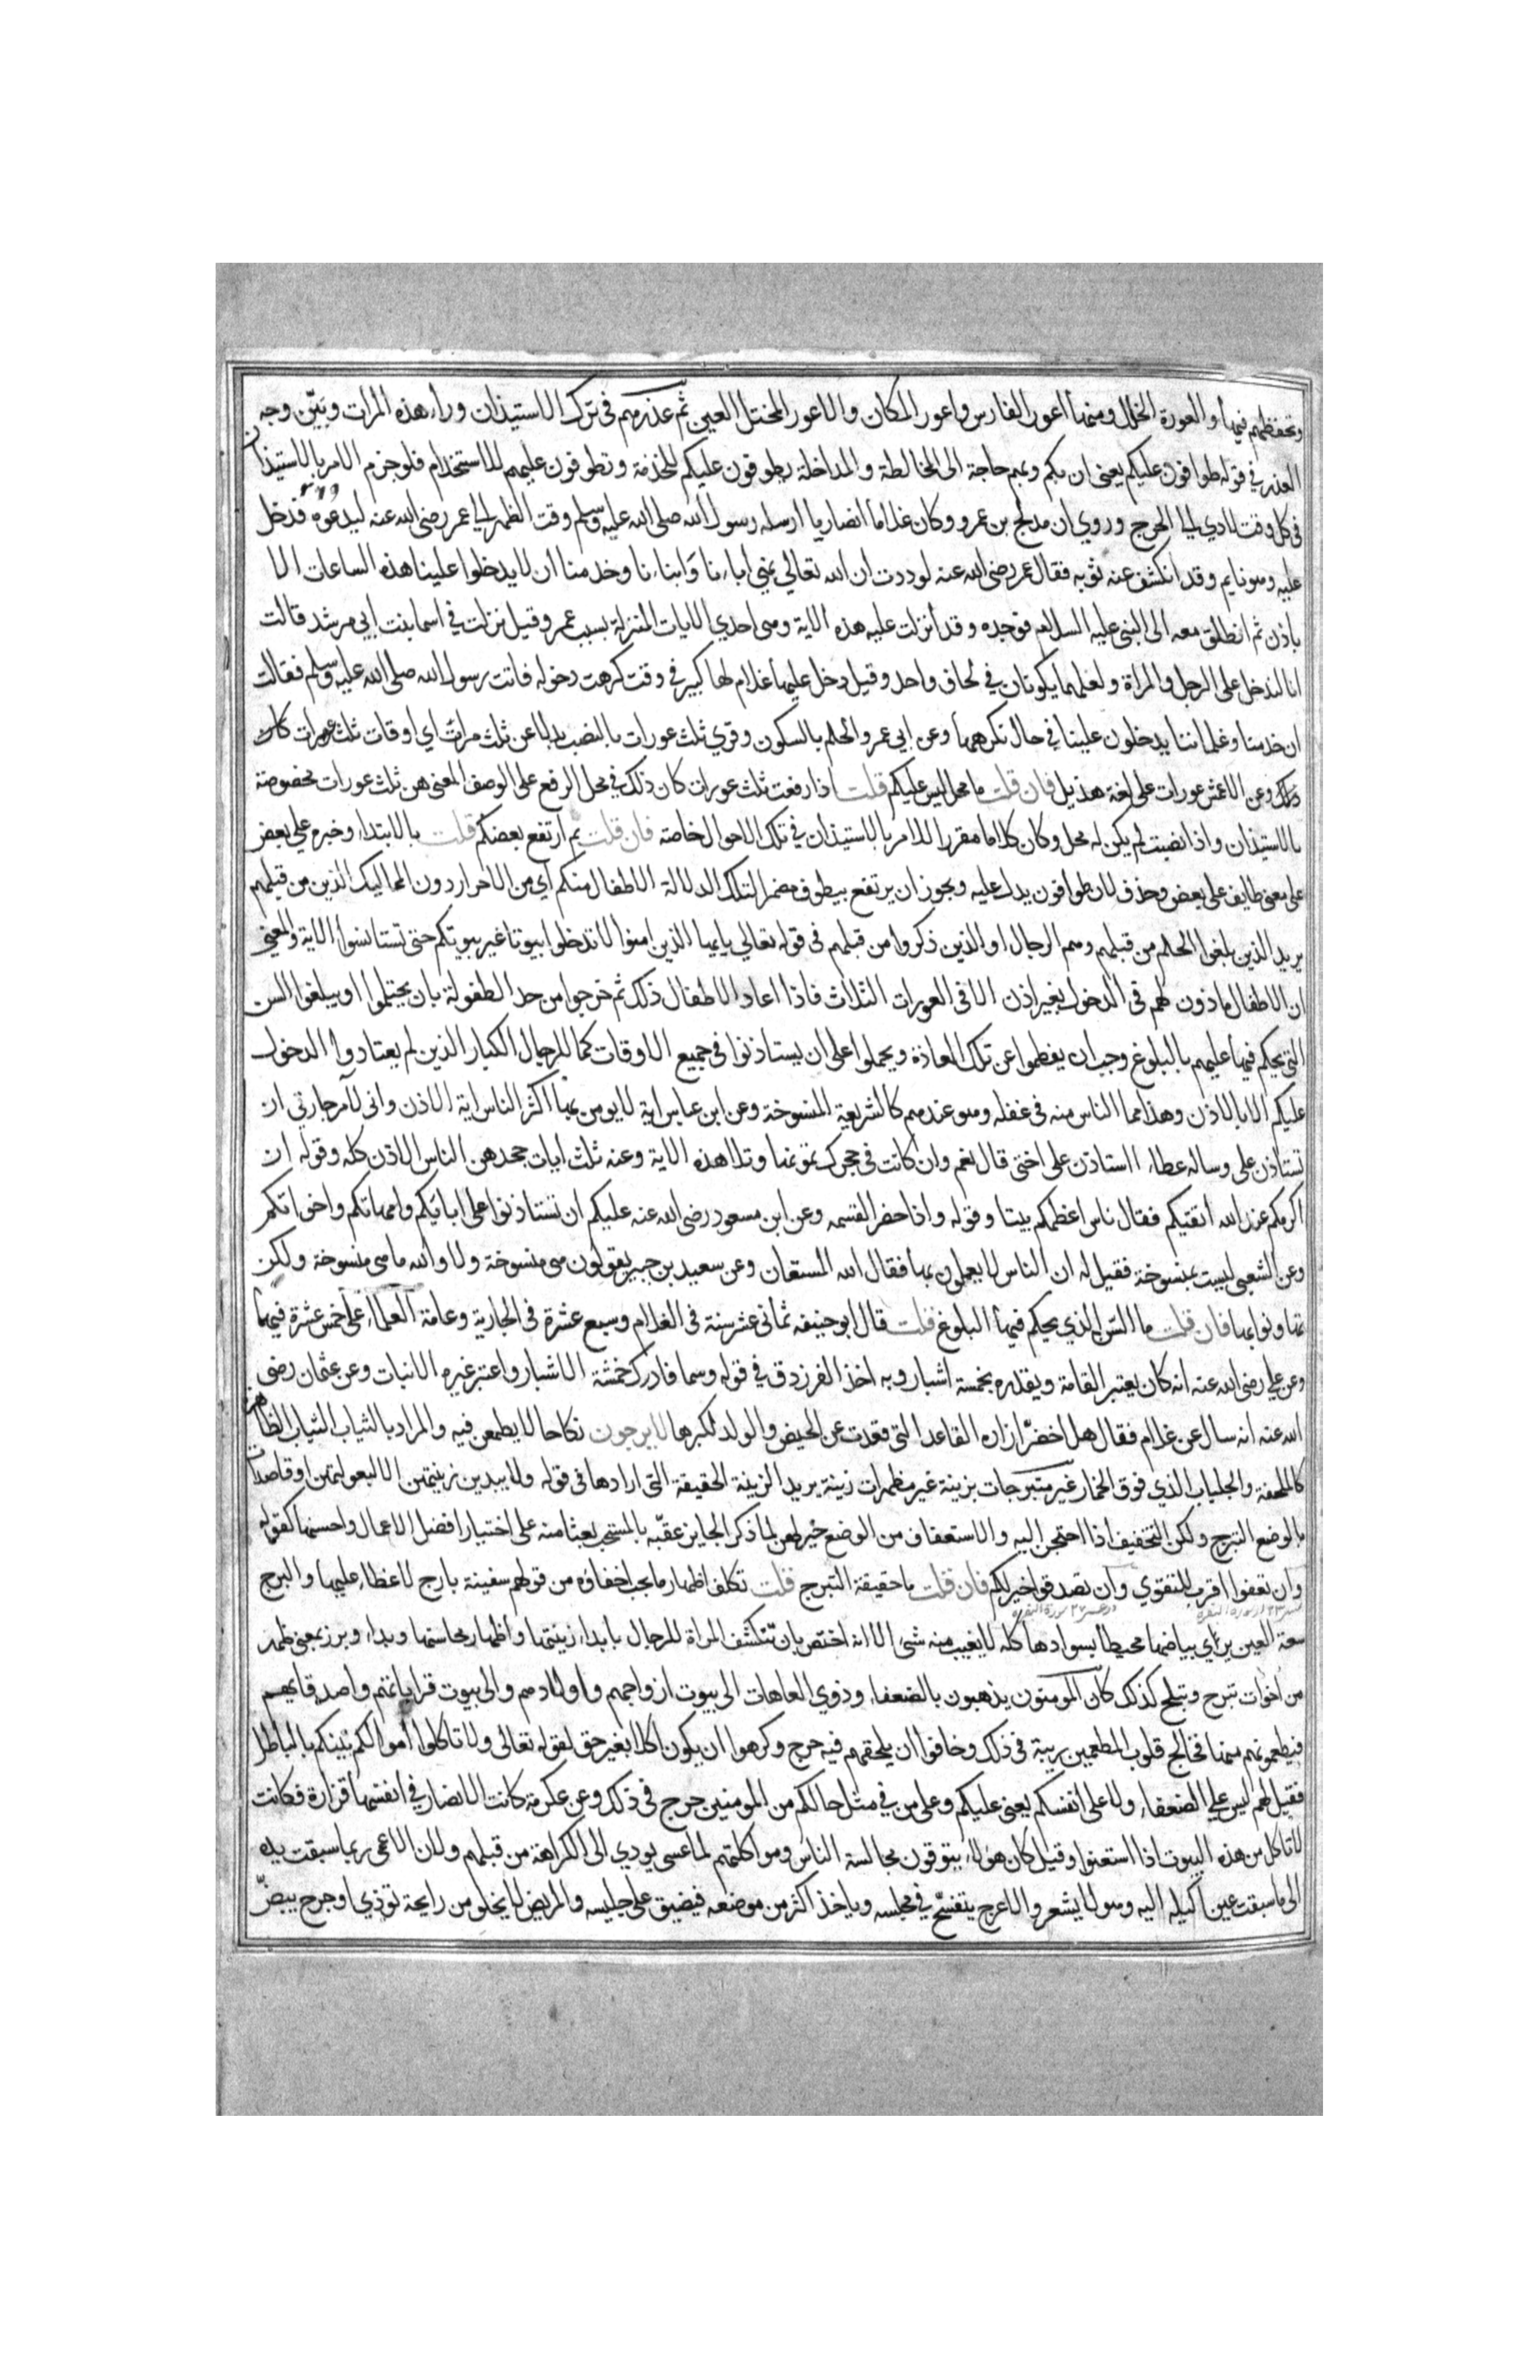 وتحفظهم فيها والعورة الخلل ومنها اعور الفارس واعور المكان والاعور المختل العين ثم عذرهم في ترك الاستيذان وراء هذه المرات وبين وجه
العذر في قوله طوافون عليكم يعني ان بكم وبهم حاجة الى المخالطة والمداخلة يطوفون عليكم للخدمة وتطوفون عليهم للاستخدام فلو جزم الامر بالاستيذان
في كل وقت لادي الي الحرج وروي ان مدلج بن عمرو وكان غلاما انصاريا ارسله رسول الله صلى الله عليه وسلم وقت الظهر الي عمر رضى الله عنه ليدعوه فدخل
عليه وهو نايم وقد انكشف عنه ثوبه فقال عمر رضى الله عنه لوددت ان الله تعالي نهي اباءنا وابناءنا وخدمنا ان لا يدخلوا علينا هذه الساعات الا
باذن ثم انطلق معه الى النبى عليه السلام فوجده وقد أنزلت عليه هذه الاية وهى احدي الايات المنزلة بسبب عمر وقيل نزلت في اسما بنت إبي مرشد قالت
انا لندخل على الرجل والمراة ولعلهما يكونان في لحاف واحد وقيل دخل عليها غلام لها كبير في وقت كرهت دخوله فاتت رسول الله صلى الله عليه وسلم فقالت
ان خدمنا وغلماننا يدخلون علينا في حال نكرهها وعن ابي عمرو الحلم بالسكون وقري ثلث عورات بالنصب بدلا عن ثلث مرات اي اوقات ثلث عورات كان
ذلك وعن الاعمش عورات على لغة هذيل فان قلت ما محل ليس عليكم قلت اذا رفعت ثلث عورات كان ذلك في محل الرفع على الوصف المعنى هن ثلث عورات مخصوصة
بالاستيذان واذا نصبت لم يكن له محل وكان كلاما مقررا للامر بالاستيذان في تلك الاحوال خاصة فان قلت بم ارتفع بعضكم قلت بالابتداء وخبره علي بعض
على معنى طايف على بعض وحذف لان طوافون يدل عليه ويجوز ان يرتفع بيطوف مضمرا لتلك الدلالة الاطفال منكم اي من الاحرار دون المماليك الذين من قبلهم
يريد الذين بلغوا الحلم من قبلهم وهم الرجال او الذين ذكروا من قبلهم فى قوله تعالي يايها الذين امنوا لا تدخلوا بيوتا غير بيوتكم حتى تستانسوا الاية والمعنى
ان الاطفال ماذون لهم فى الدخول بغير اذن الا فى العورات الثلاث فاذا اعاد الاطفال ذلك ثم خرجوا من حد الطفولة بان يحتلموا او يبلغوا السن
التى يحكم فيها عليهم بالبلوغ وجب ان يفطموا عن تلك العادة ويحملوا على ان يستاذنوا فى جميع الاوقات كما للرجال الكبار الذين لم يعتادوا الدخول
عليكم الا بالاذن وهذا مما الناس منه فى غفله وهو عندهم كالشريعة المنسوخة وعن ابن عباس اية لا يومن بها اكثر الناس اية الاذن وانى لآمر جارتي ان
تستاذن على وساله عطاء ااستاذن على اختى قال نعم وان كانت فى حجرك تمونها وتلا هذه الاية وعنه ثلث ايات جحدهن الناس الاذن كله وقوله ان
اكرمكم عند الله اتقيكم فقال ناس اعظمكم بيتا وقوله واذا حضر القسمه وعن ابن مسعود رضى الله عنه عليكم ان تستاذنوا على ابائكم وامهاتكم واخواتكم
وعن الشعبى ليست بمنسوخة فقيل له ان الناس لا يعملون بها فقال الله المستعان وعن سعيد بن جبير يقولون هى منسوخة ولا والله ما هى منسوخة ولكن
تهاونوا بها فان قلت ما السن الذي يحكم فيها البلوغ قلت قال ابو حنيفه ثمانى عشر سنة فى الغلام وسبع عشرة فى الجارية وعامة العلماء على خمس عشرة فيهما
وعن علي رضى الله عنه انه كان يعتبر القامة ويقدره بخمسة اشبار وبه اخذ الفرزدق في قوله وسما فادرك خمسة الاشبار واعتبر غيره الانبات وعن عثمان رضى
الله عنه انه سال عن غلام فقال هل اخضر ازاره القاعد التى قعدت عن الحيض والولد لكبرها لا يرجون نكاحا لا يطمعن فيه والمراد بالثياب الثياب الظاهرة
كالملحفة والجلباب الذي فوق الخمار غير متبرجات بزينة غير مظهرات زينة يريد الزينة الحقيقة التى ارادها فى قوله ولا يبدين زينتهن الا لبعولتهن او قاصدات
بالوضع التبرج ولكن التخفيف اذا احتجن اليه والاستعفاف من الوضع خير لهن لما ذكر الجايز عقبه بالمستحب بعثا منه على اختيار افضل الاعمال واحسنها كقوله
وان تعفوا اقرب للتقوي وان تصدقوا خير لكم فان قلت ما حقيقة التبرج قلت تكلف اظهار ما يجب اخفاؤه من قولهم سفينة بارج لا غطاء عليها والبرج
سعة العين يري بياضها محيطا بسوادها كله لا يغيب منه شى الا انه اختص بان تتكشف المراة للرجال بابداء زينتها واظهار محاسنها وبدا وبرز بمعنى ظهر
من اخوات تبرج وتبلج كذلك كان المومنون يذهبون بالضعفاء وذوي العاهات الى بيوت ازواجهم واولادهم والى بيوت قراباتهم واصدقايهم
فيطعمونهم منها فخالج قلوب المطعمين ريبة فى ذلك وخافوا ان يلحقهم فيه حرج وكرهوا ان يكون اكلا بغير حق لقوله تعالى ولا تاكلوا أموالكم بينكم بالباطل
فقيل لهم ليس علي الضعفاء ولا على انفسكم يعنى عليكم وعلى من في مثل حالكم من المومنين حرج فى ذلك وعن عكرمة كانت الانصار في أنفسها قزازة فكانت
لا تاكل من هذه البيوت اذا استغنوا وقيل كان هؤلاء يتوقون مجالسة الناس ومواكلتهم لما عسى يودي الى الكراهة من قبلهم ولان الاعمى ربما سبقت يده
الى ما سبقت عين اكيله اليه وهو لا يشعر والاعرج يتفسح في مجلسه وياخذ اكثر من موضعه فيضيق على جليسه والمريض لا يخلو من رايحة توذي او جرح يبض